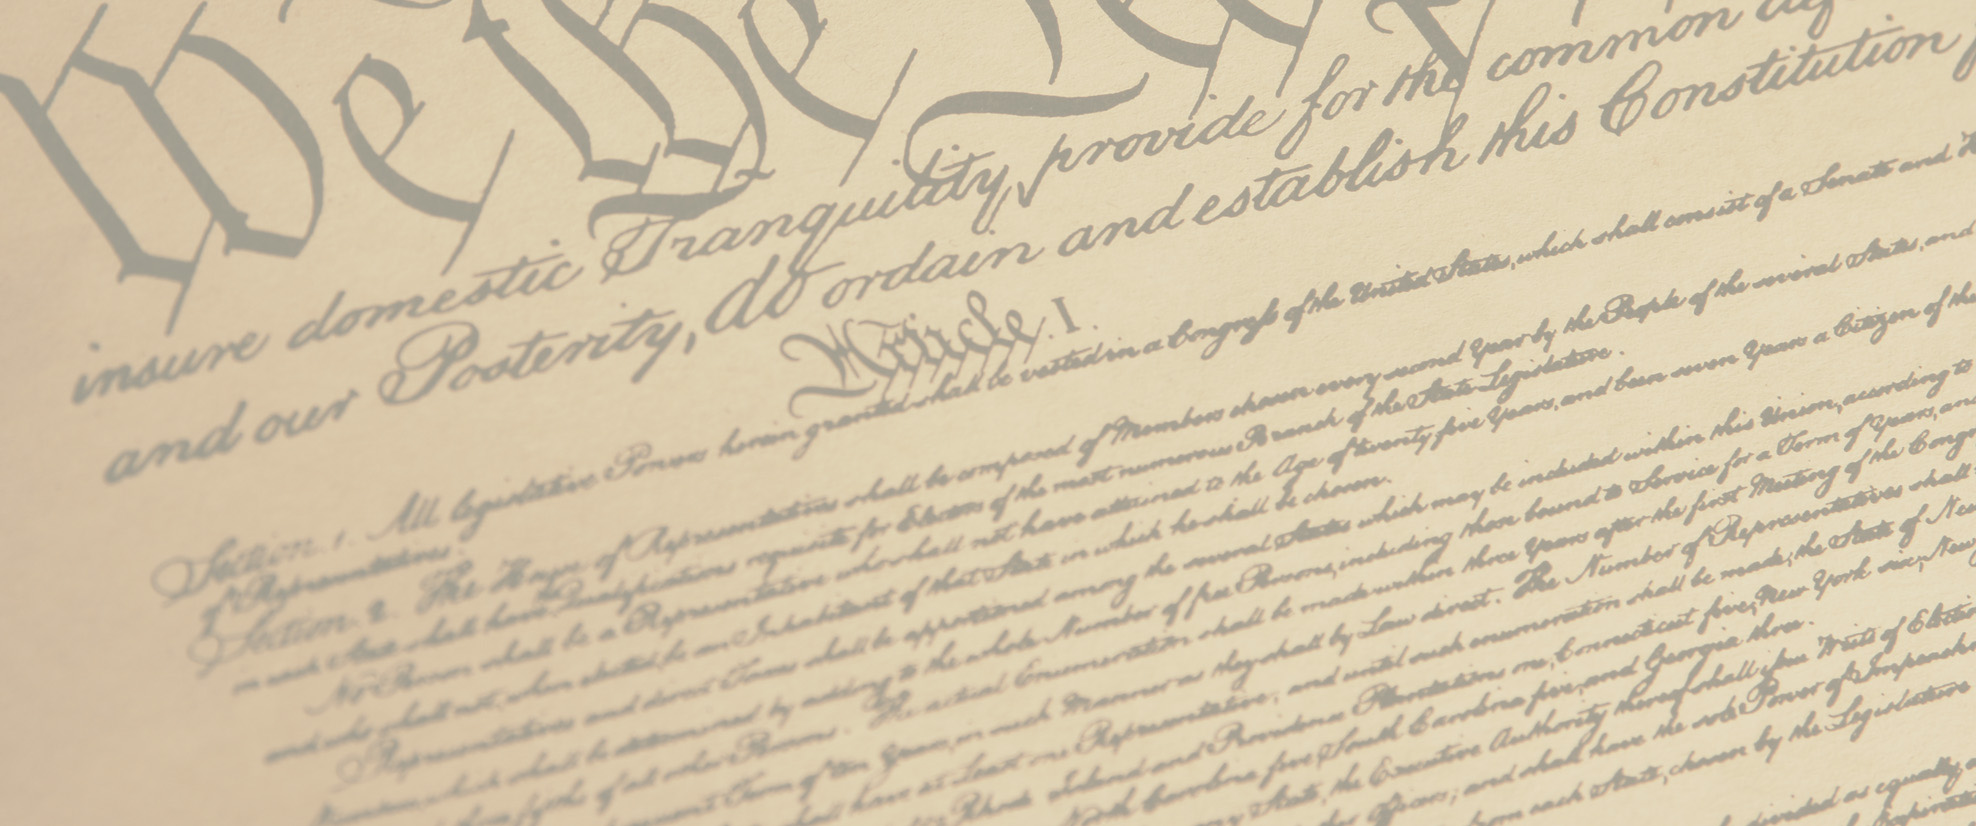 We the Peop
insure domestic Tranquility, provide for the common def
and our Posterity, do ordain and establish this Constitution f
Article. I.
Section. 1. All legislative Powers herein granted shall be vested in a Congress of the United States, which shall consist of a Senate and
of Representatives.
Section. 2. The House of Representatives shall be composed of Members chosen every second Year by the People of the several States, and
in each State shall have Qualifications requisite for Electors of the most numerous Branch of the State Legislature.
No Person shall be a Representative who shall not have attained to the Age of twenty five Years, and been seven Years a Citizen of the
and who shall not, when elected, be an Inhabitant of that State in which he shall be chosen.
Representatives and direct Taxes shall be apportioned among the several States which may be included within this Union, according to
Numbers, which shall be determined by adding to the whole Number of free Persons, including those bound to Service for a Term of Years, and
three fifths of all other Persons. The actual Enumeration shall be made within three Years after the first Meeting of the Congr
Term of ten Years, in such Manner as they shall by Law direct. The Number of Representatives shall
shall have at Least one Representative; and until such enumeration shall be made, the State of New
Rhode Island and Providence Plantations one, Connecticut five, New York six, New
North Carolina five, South Carolina five, and Georgia three.
State, the Executive Authority thereof shall issue Writs of Electio
other Officers; and shall have the sole Power of Impeachm
from each State, chosen by the Legislature
divided as equally